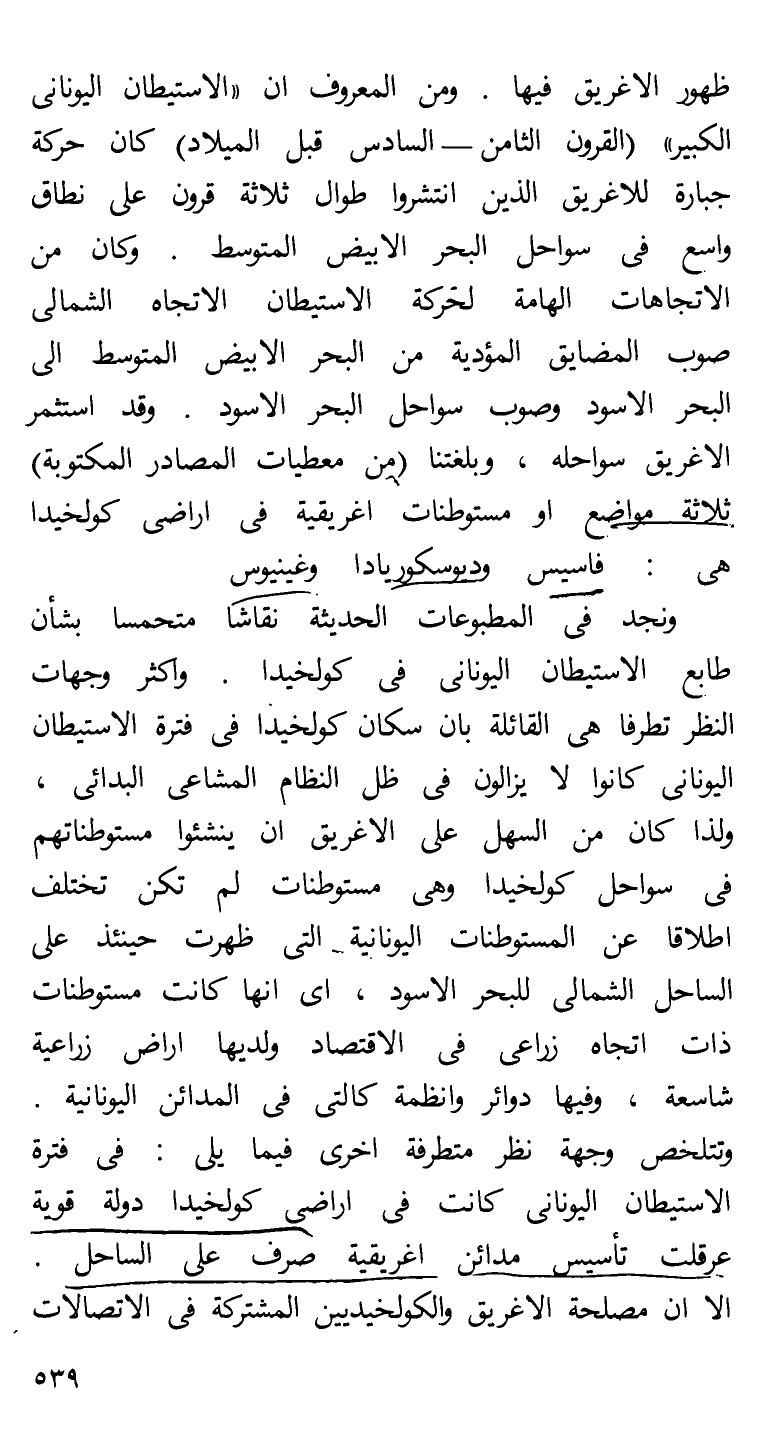 ظهور الاغريق فيها . ومن المعروف ان «الاستيطان اليونانى
الكبير» (القرون الثامن — السادس قبل الميلاد) كان حركة
جبارة للاغريق الذين انتشروا طوال ثلاثة قرون على نطاق
واسع فى سواحل البحر الابيض المتوسط . وكان من
الاتجاهات الهامة لحركة الاستيطان الاتجاه الشمالى
صوب المضايق المؤدية من البحر الابيض المتوسط الى
البحر الاسود وصوب سواحل البحر الاسود . وقد استثمر
الاغريق سواحله ، وبلغتنا (من معطيات المصادر المكتوبة)
ثلاثة مواضع او مستوطنات اغريقية فى اراضى كولخيدا
هى : فاسيس وديوسكوريادا وغينيوس
ونجد فى المطبوعات الحديثة نقاشا متحمسا بشأن
طابع الاستيطان اليونانى فى كولخيدا . واكثر وجهات
النظر تطرفا هى القائلة بان سكان كولخيدا فى فترة الاستيطان
اليونانى كانوا لا يزالون فى ظل النظام المشاعى البدائى ،
ولذا كان من السهل على الاغريق ان ينشئوا مستوطناتهم
فى سواحل كولخيدا وهى مستوطنات لم تكن تختلف
اطلاقا عن المستوطنات اليونانية التى ظهرت حينئذ على
الساحل الشمالى للبحر الاسود ، اى انها كانت مستوطنات
ذات اتجاه زراعى فى الاقتصاد ولديها اراض زراعية
شاسعة ، وفيها دوائر وانظمة كالتى فى المدائن اليونانية .
وتتلخص وجهة نظر متطرفة اخرى فيما يلى : فى فترة
الاستيطان اليونانى كانت فى اراضى كولخيدا دولة قوية
عرقلت تأسيس مدائن اغريقية صرف على الساحل .
الا ان مصلحة الاغريق والكولخيديين المشتركة فى الاتصالات
٥٣٩